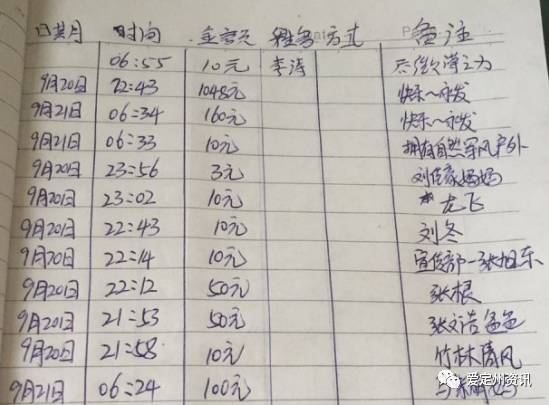 日期 时间 金额元 姓名 方式 备注
06:55 10元 李涛
9月20日 22:43 1048元 快乐～永发
9月21日 06:34 160元 快乐～永发
9月21日 06:33 10元 拥有自然军风户外
9月20日 23:56 3元 刘佳豪妈妈
9月20日 23:02 10元 龙飞
9月20日 22:43 10元 刘冬
9月20日 22:14 10元 宣传部一张旭东
9月20日 22:12 50元 张根
9月20日 21:53 50元 张文浩
9月20日 21:58 10元 竹林清风
9月21日 06:24 100元
爱定州资讯